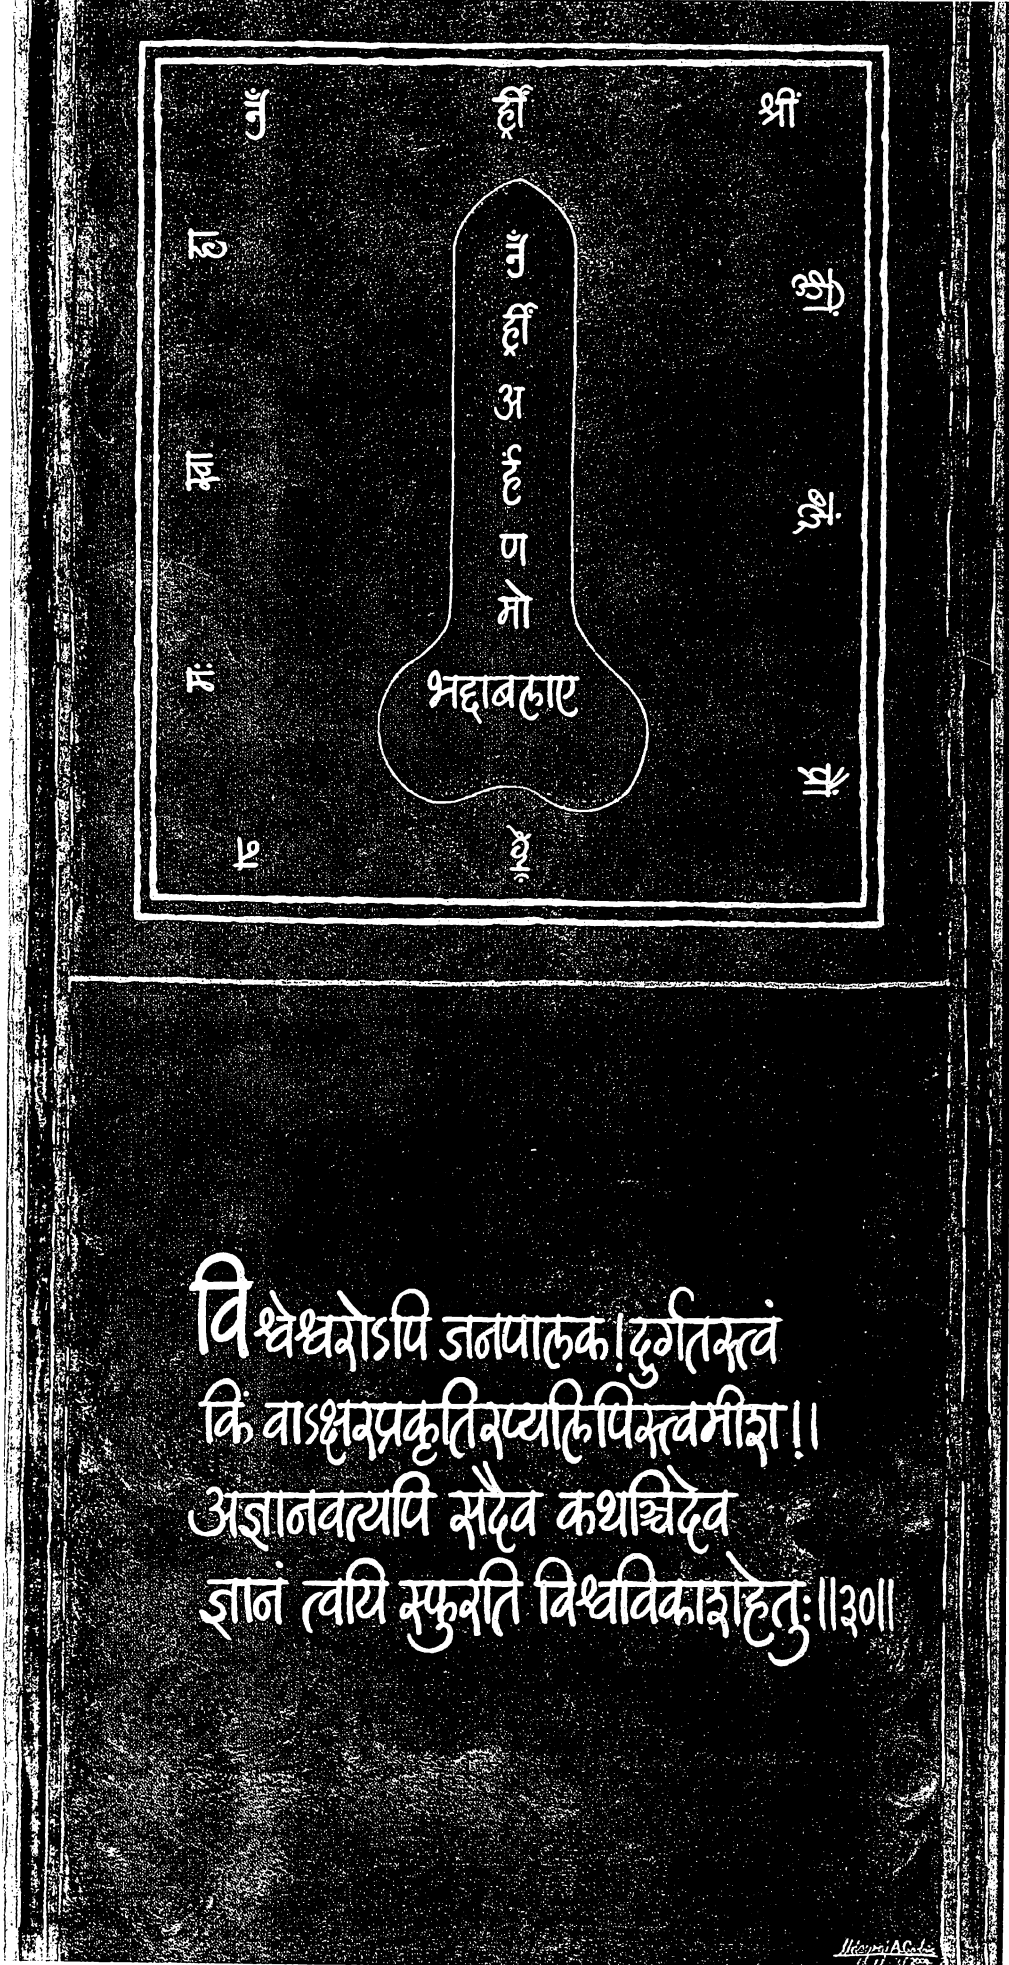 ॐ ह्रीं श्रीं
क्लीं
ॐ
ह्रीं
अ
र्हं
ण
मो
भद्दाबलाए
हा
स्वा
मः
न
विश्वेश्वरोऽपि जनपालक! दुर्गतस्त्वं
किं वाऽक्षरप्रकृतिरप्यलिपिस्त्वमीश!।
अज्ञानवत्यपि सदैव कथञ्चिदेव
ज्ञानं त्वयि स्फुरति विश्वविकाशहेतुः॥३०॥